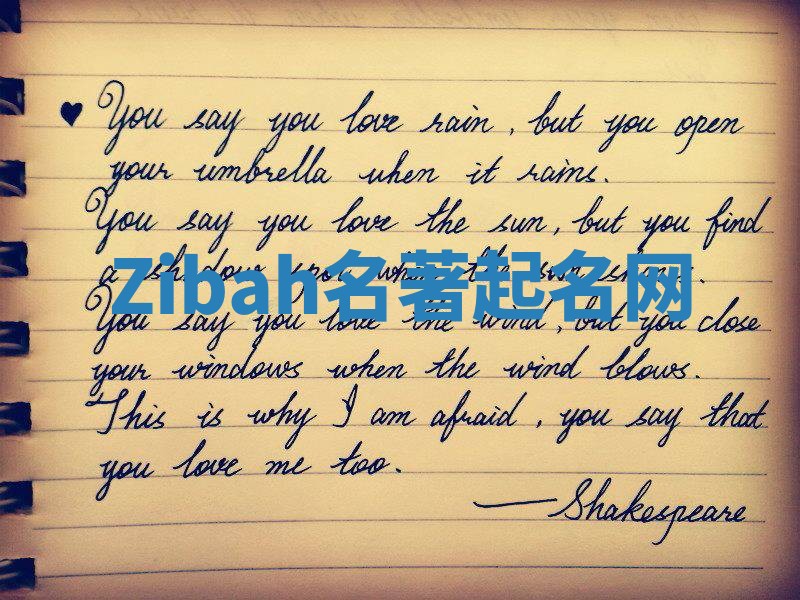 ♥ You say you love rain, but you open
your umbrella when it rains.
You say you love the sun, but you find
a shadow spot when the sun shines.
Zibah名著起名网
You say you love the wind, but you close
your windows when the wind blows.
This is why I am afraid, you say that
you love me too.
—Shakespeare